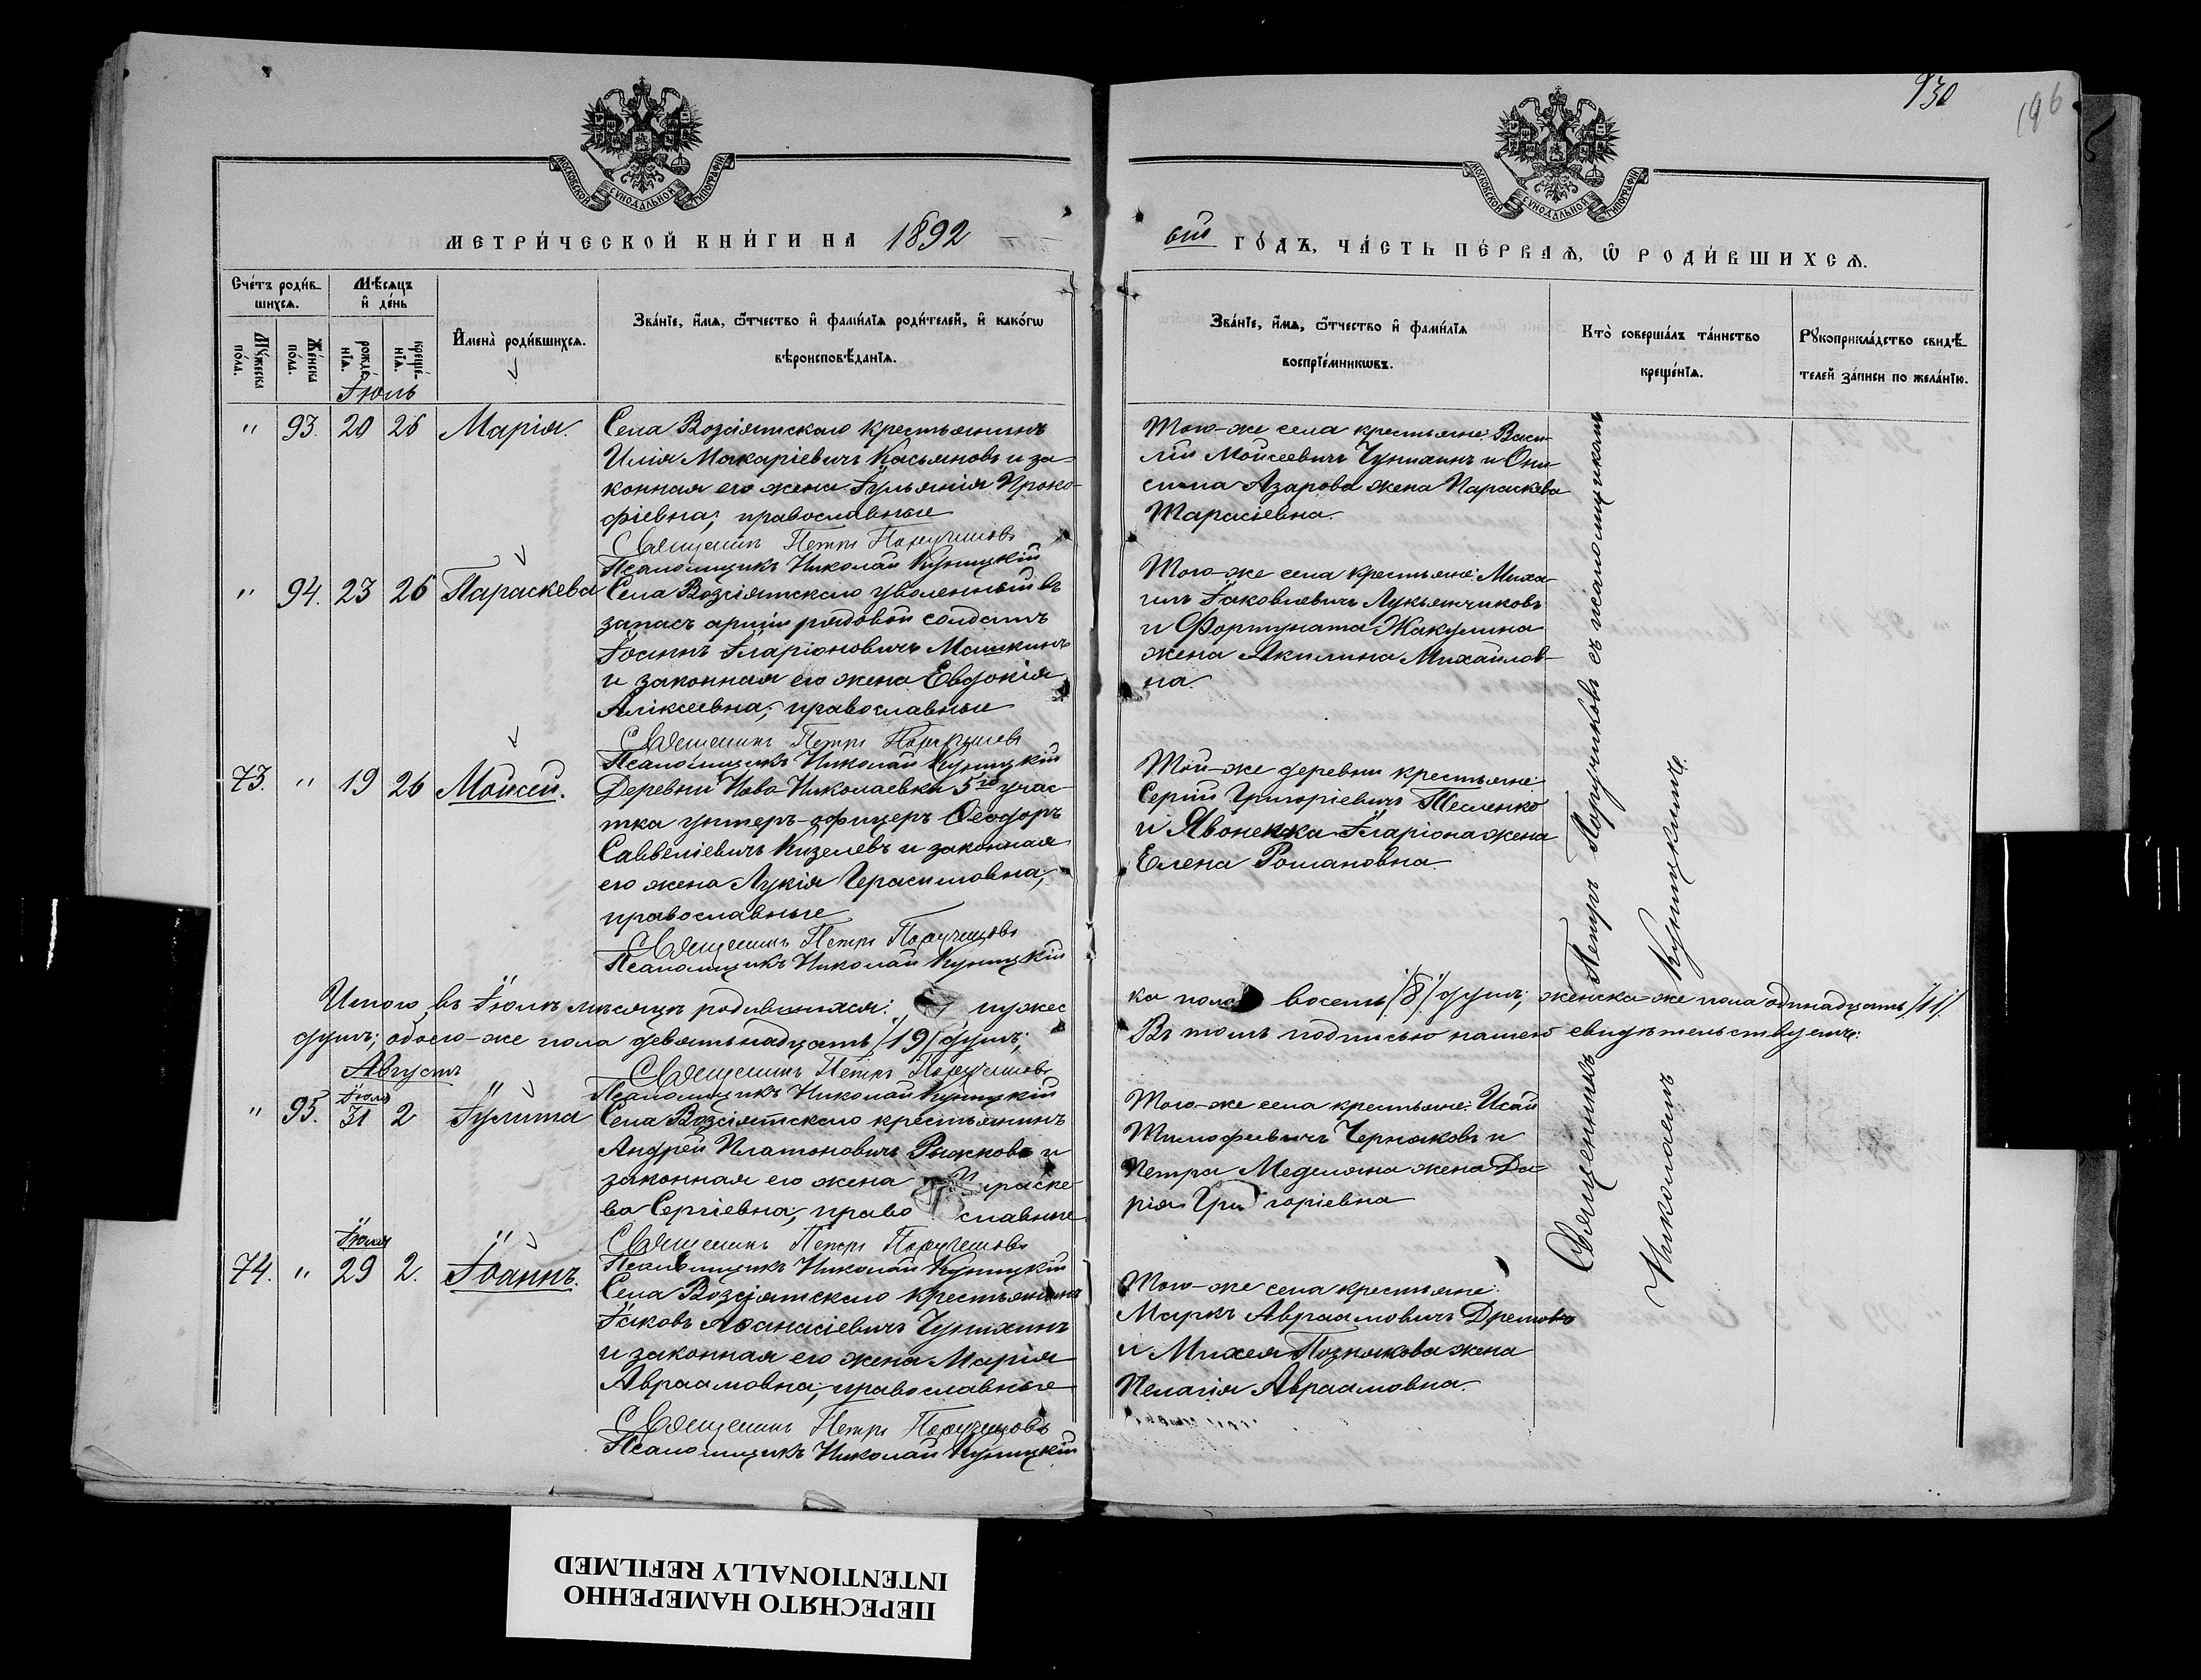 930
196
МОСКОВСКОЙ СѴНОДАЛЬНОЙ ТИПОГРАФІИ
МОСКОВСКОЙ СѴНОДАЛЬНОЙ ТИПОГРАФІИ
МЕТРИ́ЧЕСКОЙ КНИ́ГИ НА 1892
ой ГО́ДЪ, ЧА́СТЬ ПЕ́РВАѦ, Ѡ РОДИ́ВШИХСѦ.
Сче́тъ роди́в-
шихсѧ.
Мѣ́сѧцъ
и҆ де́нь
Мꙋ́жеска по́ла.
Же́нска по́ла.
рожде́нїѧ.
креще́нїѧ.
И҆мена̀ роди́вшихсѧ.
Зва́нїе, и҆́мѧ, ѻ҆́тчество и҆ фами́лїѧ роди́телей, и҆ како́гѡ
вѣроисповѣ́данїѧ.
Зва́нїе, и҆́мѧ, ѻ҆́тчество и҆ фами́лїѧ
воспрїе́мникѡвъ.
Кто̀ соверша́лъ та́инство
креще́нїѧ.
Рꙋкоприкла́дство свидѣ́-
телей за́писи по жела́нїю.
Іюль
" 93. 20 26 Марія.
Села Возсіятскаго крестьянинъ
Илія Макаріевичъ Касьяновъ и за-
конная его жена Іульянія Проко-
фіевна; православные
Священникъ Петръ Поручиковъ
Псаломщикъ Николай Куницкій
Того-же села крестьяне: Васи-
лій Мойсеевичъ Чунихинъ и Они-
сима Азарова жена Параскева
Тарасіевна.
" 94. 23 26 Параскева
Села Возсіятскаго уволенный въ
запасъ арміи рядовой солдатъ
Іоаннъ Иларіоновичъ Машкинъ
и законная его жена Евдокія
Алексеевна; православные
Священникъ Петръ Поручиковъ
Псаломщикъ Николай Куницкій
Того-же села крестьяне: Миха-
илъ Іаковлевичъ Лукьянчиковъ
и Фортуната Жакулина
жена Акилина Михайлов-
на.
73. " 19 26 Мойсей.
Деревни Ново-Николаевки 5го учас-
тка унтеръ-офицеръ Ѳеодоръ
Саввеліевичъ Кизелевъ и законная
его жена Лукія Герасимовна,
православные
Священникъ Петръ Поручиковъ
Псаломщикъ Николай Куницкій
Той-же деревни крестьяне:
Сергій Григоріевичъ Тесленко
и Явоненка Иларіона жена
Елена Романовна.
Итого въ Іюлѣ мѣсяцѣ родившихся: мужес
ка пола восемь /8/ душъ; женска-же пола одинадцать /11/
душъ; обоего-же пола девятьнадцать /19/ душъ;
Въ томъ подписью нашею свидѣтельствуемъ:
Священникъ Петръ Поручиковъ
Псаломщикъ Николай Куницкій
Августъ
" 95. Іюля 31 2 Іулита
Села Возсіятскаго крестьянинъ
Андрей Платоновичъ Рыжковъ и
законная его жена Параске-
ва Сергіевна, право славные
Священникъ Петръ Поручиковъ
Псаломщикъ Николай Куницкій
Того-же села крестьяне: Исай
Тимофеевичъ Черняковъ и
Петра Медсляна жена Да-
рія Гри горіевна
74. " Іюля 29 2. Іоаннъ.
Села Возсіятскаго крестьянинъ
Іаковъ Аѳанасіевичъ Чунихинъ
и законная его жена Марія
Авраамовна; православные
Священникъ Петръ Поручиковъ
Псаломщикъ Николай Куницкій
Того-же села крестьяне:
Маркъ Авраамовичъ Дремовъ
и Михея Познякова жена
Пелагія Авраамовна.
Священникъ Петръ Поручиковъ съ псаломщикомъ
Николаемъ Куницкимъ.
ПЕРЕСНЯТО НАМЕРЕННО
INTENTIONALLY REFILMED